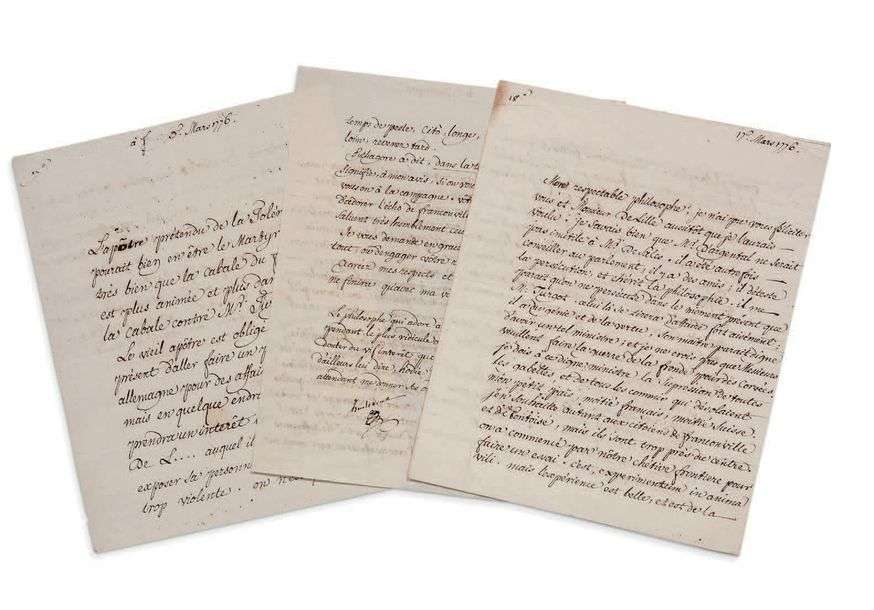 à f 5e. Mars 1776.
La pôtre prétendu de la Tolér
pourait bien en être le Martyr
très bien que la cabale du
est plus animée et plus dan
la cabale contre Mr.
Le vieil apôtre est obligé
présent d'aller faire un
allemagne pour des affai
mais en quelque endro
prendra un intérêt
De L.... auquel il
exposer sa personn
trop violente. on n'es
temps de poste, cito, longe,
loin, revenez tard.
Pithagore a dit, dans la te
signifie à mon avis, si on vou
vous on à la campagne,
D'adorer l'écho de franconville
saluent très humblement
Je vous demande en grac
tact, ou d'engager votre
Agréer mes regrets et
ne finira qu'avec ma v
Le philosophe qui adore
gendant le plus ridicule
Doctor du vil intérêt que
d'ailleurs les
attendent
18e
17e. Mars 1776.
Mon respectable philosophe; je n'ai pu vous féliciter
vous et Monsieur De Lille aussitôt que je l'aurais
voulu; je savais bien que Mr. Dargental ne serait
pas inutile à Mr. De Lile, il a été autrefois
conseiller au parlement, il y a des amis, il déteste
la persécution, et chérit la philosophie, il me
parait qu'on ne persécute dans le moment présent que
M. Turgot, mais il se tirera d'affaire fort aisément,
il a du génie et de la vertu, son maître parait digne
d'avoir un tel ministre; et je ne crois pas que Messieurs
veuillent faire la guerre de la fronde pour des corvées.
je dois à ce digne ministre la supression de toutes
les gabelles, et de tous les commis qui désolaient
mon petit païs, moitié français, moitié suisse.
j'en souhaite autant aux citoiens de franconville
et de Pontoise, mais ils sont trop près du centre
on a commencé par nôtre chétive frontiere pour
faire un essai. c'est, experimentum in anima
vili. mais l'expérience est belle, et est de la